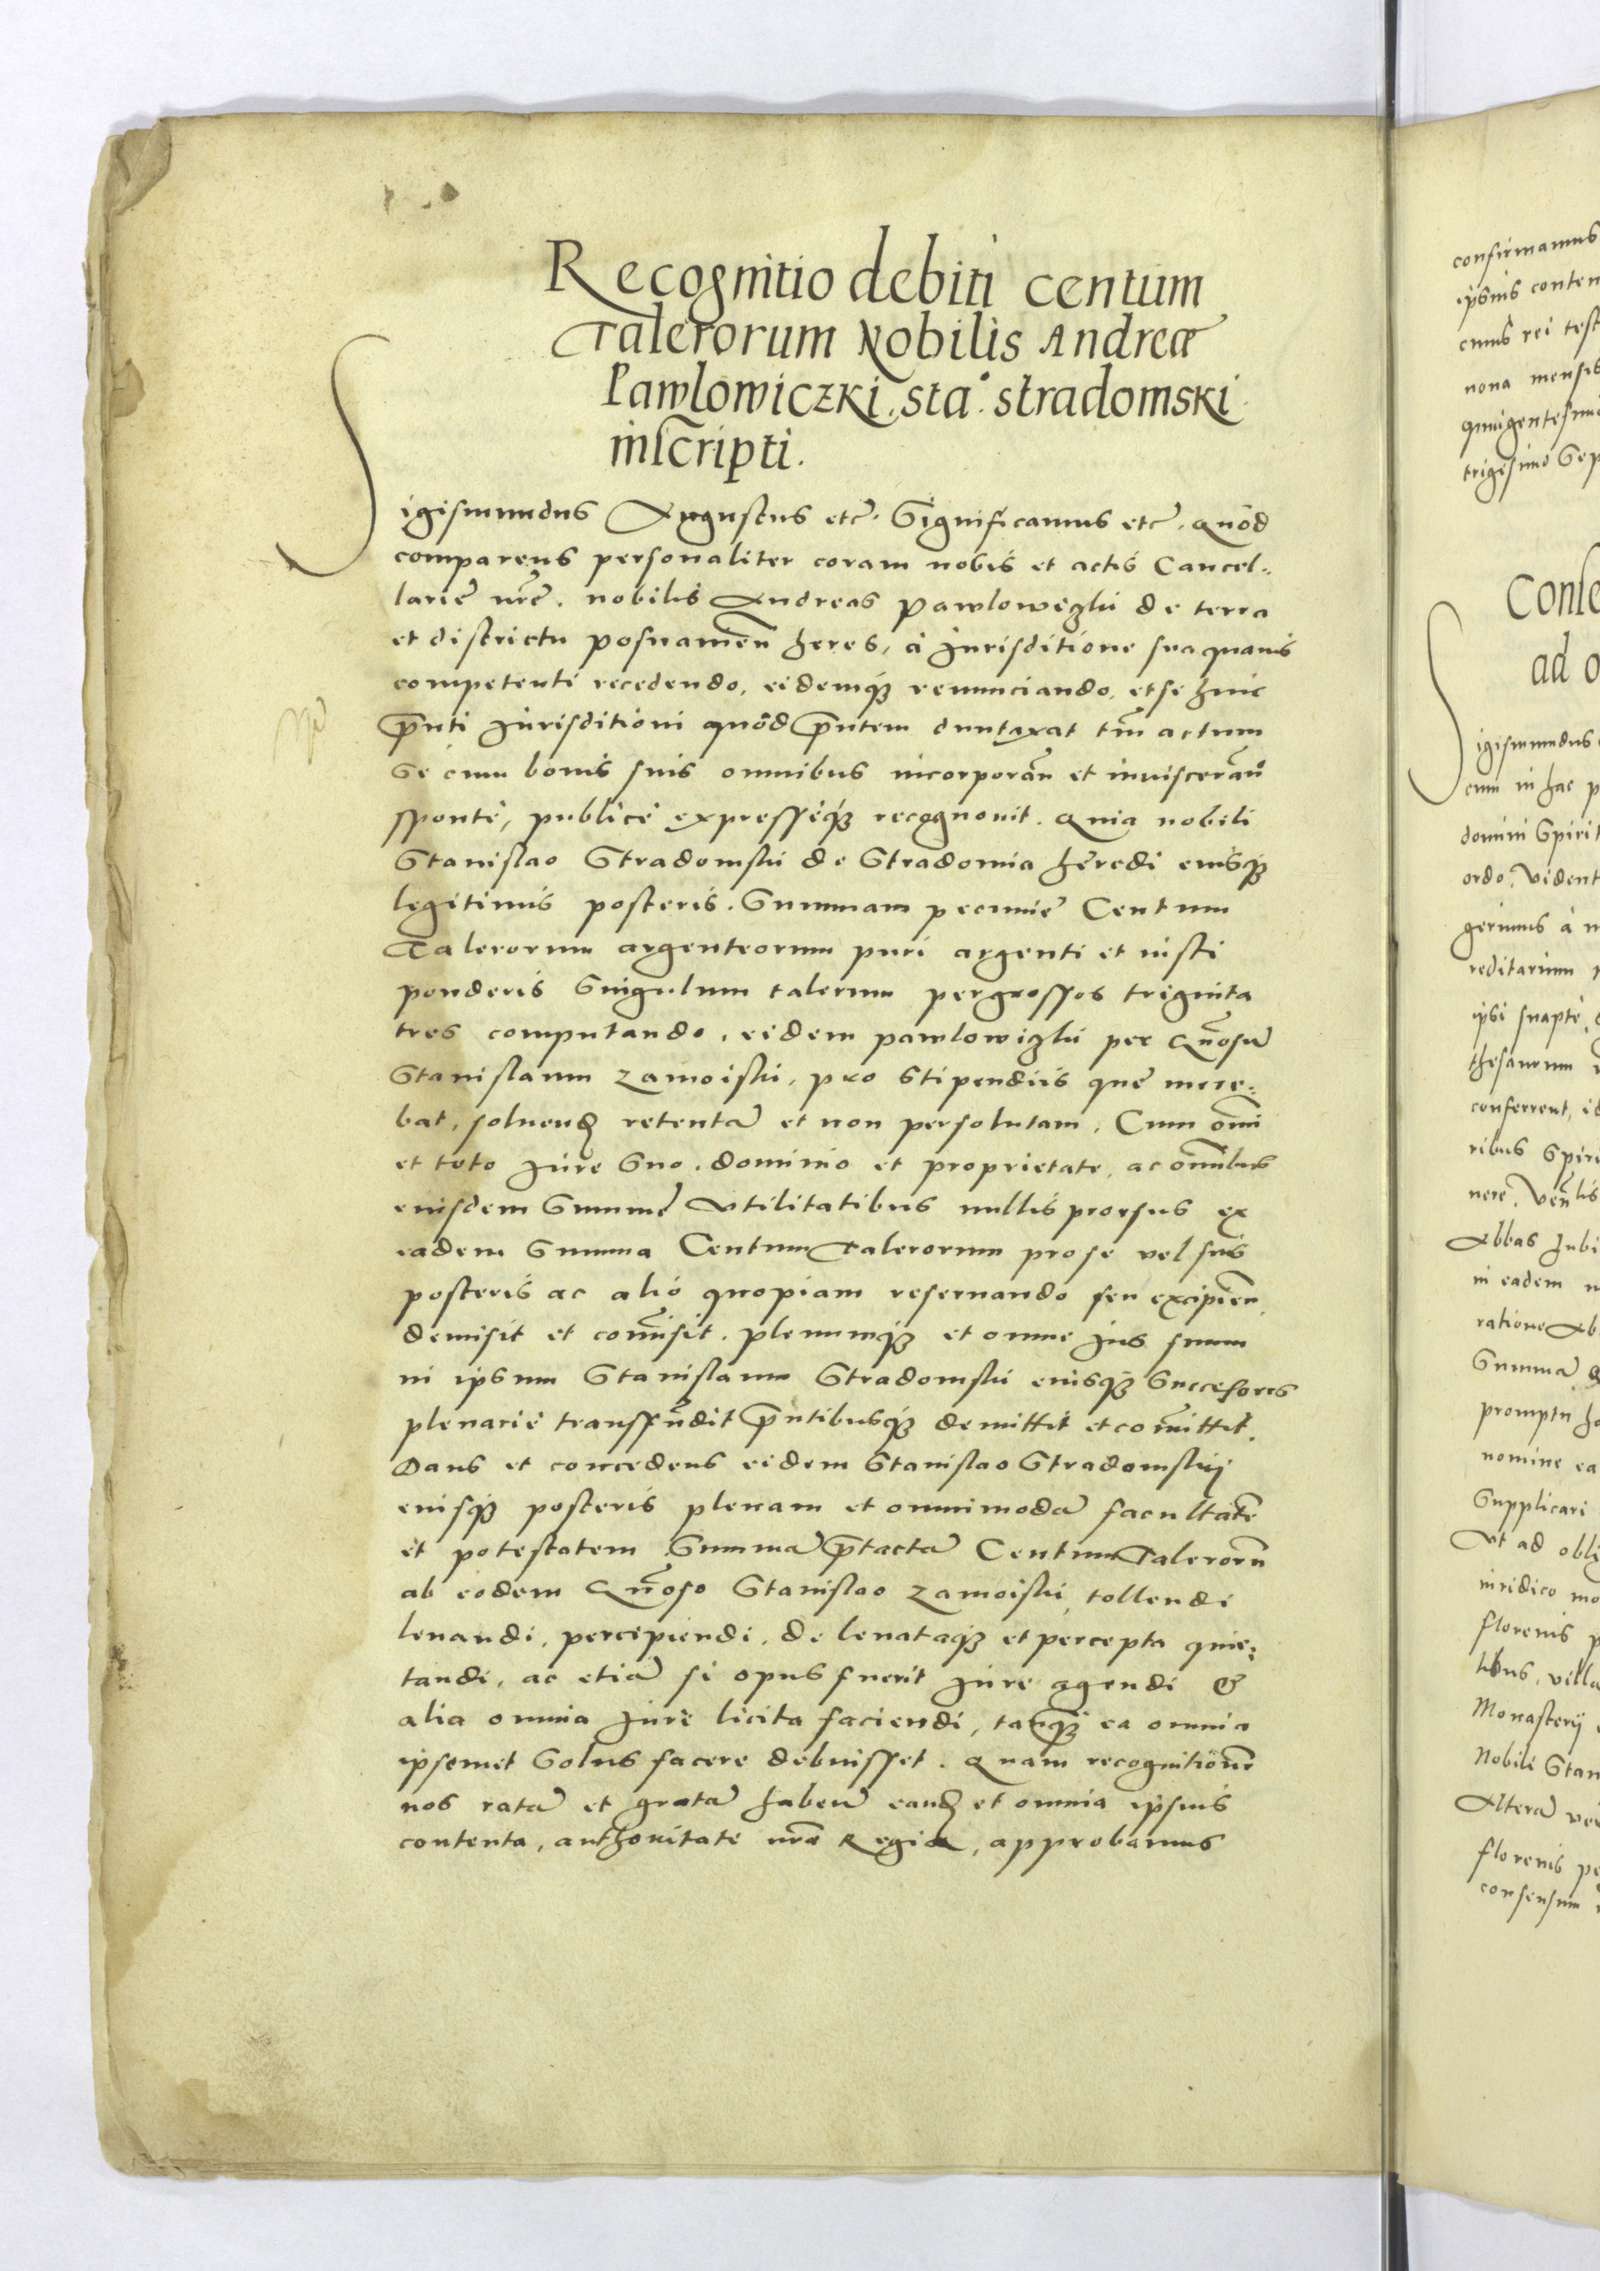 Recognitio debiti centum
Talerorum Nobilis Andreæ
Pawlowiczki. sta°. stradomski
inscripti.
Sigismundus Augustus etc. Significamus etc. Quòd
comparens personaliter coram nobis et actis Cancel-
larie nre. nobilis Andreas Pawlowiczki de terra
et districtu posnamen heres, à Jurisditione sua quauis
competenti recedendo, eidemque renunciando, et se huic
pnti Jurisditioni quòd pntem duntaxat tm actum
se cum bonis suis omnibus incorporan et inuisceran
sponte, publice expresseque recognouit. Quia nobili
Stanislao Stradomski de Stradomia heredi eiusque
legitimis posteris. Summam pecunie Centum
Talerorum argenteorum puri argenti et iusti
ponderis Singulum talerum per grossos triginta
tres computando, eidem pawlowiczki per Gnosum
Stanislaum Zamoiski, pro stipendiis que mere-
bat, soluend retenta et non persolutam. Cum omi
et toto Jure Suo, dominio et proprietate, ac omnibus
eiusdem Summe Vtilitatibus nullis prorsus ex
eadem Summa Centum Talerorum pro se vel suis
posteris ac alio quopiam reseruando seu excipien
demisit et comisit. plenumque et omne Jus suum
in ipsum Stanislaum Stradomski eiusque Successores
plenarie transfundit pntibusque demittit et comittit.
Dans et concedens eidem Stanislao Stradomskij
eiusque posteris plenam et omnimoda facultate
et potestatem Summa ptacta Centum Taleroru
ab eodem Gnoso Stanislao Zamoiski, tollendi
leuandi, percipiendi, de leuataque et percepta quie-
tandi, ac etia si opus fuerit Jure agendi &
alia omnia Jure licita faciendi, tanque ea omnia
ipsemet Solus facere debuisset. Quam recognitione
nos rata et grata haben eand et omnia ipsius
contenta, authoritate nra Regia, approbamus
confirmamus
ipsius conten
cuius rei test
nona mensis
quingentesimo
trigesimo Sep
Conse
ad o
Sigismundus
cum in hac p
domini Spirit
ordo, vident
gerimus à n
reditarium
ipsi suapte
thesaurum
conferrent, id
ribus Spiri
nere, Venlis
Abbas Jubi
in eadem m
ratione Ab
Summa
promptu ha
nomine ea
Supplicari
Vt ad obli
iuridico mo
florenis p
tibus, villa
Monasterij
Nobili Stan
Altera ver
florenis pe
consensum